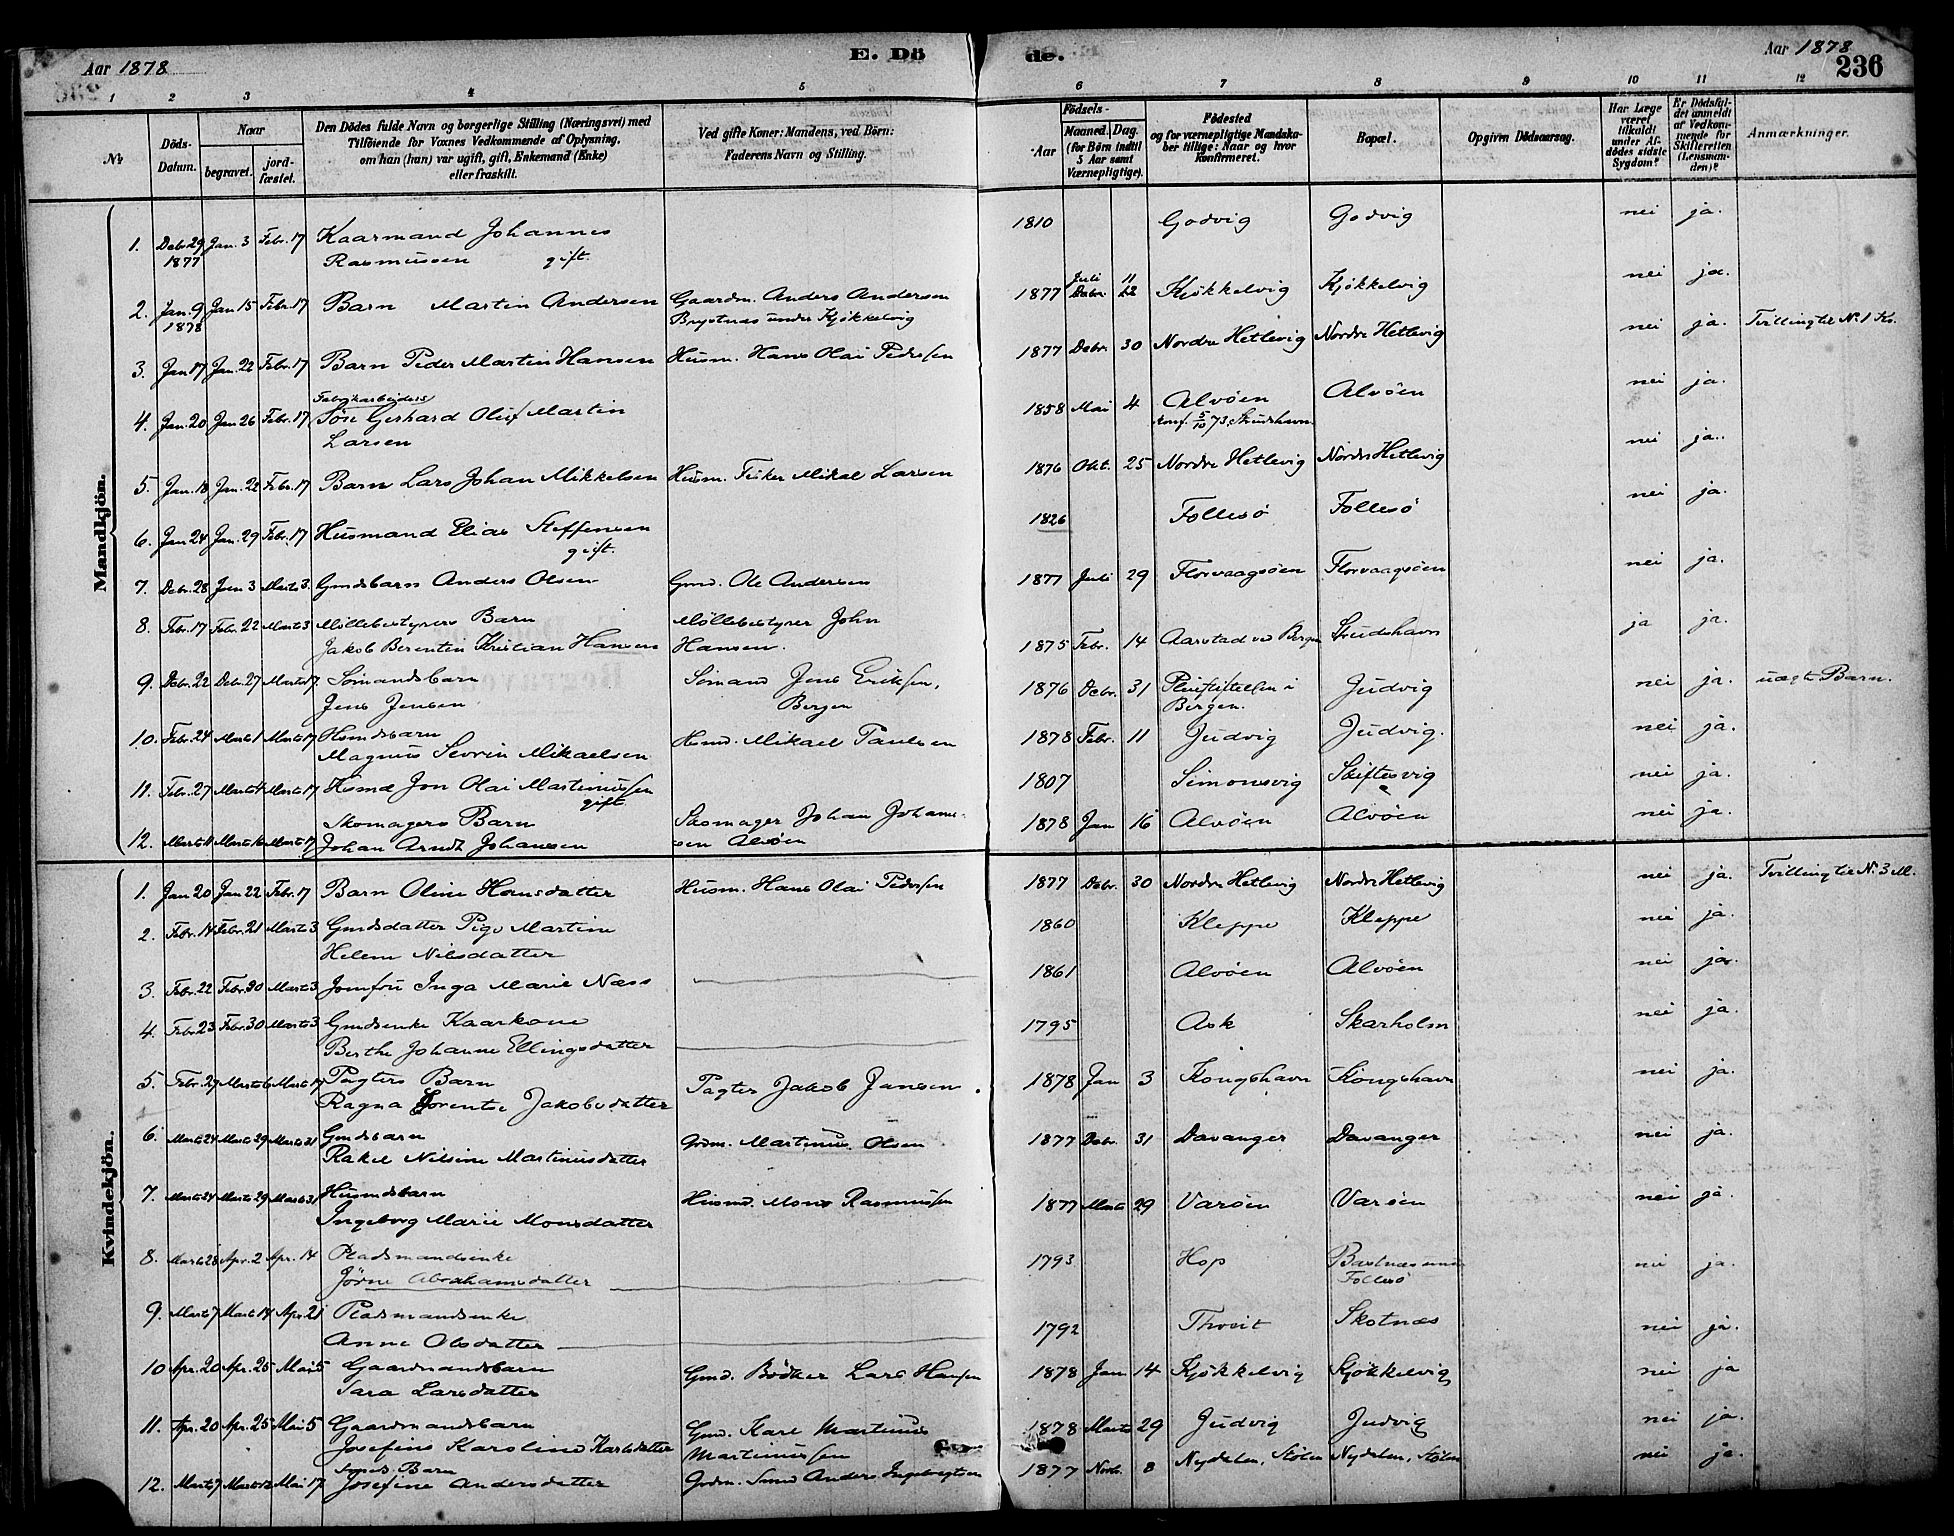 Aar 1878
E. Dö
de.
Aar 1878
236
1 2 3 4 5 6 7 8 9 10 11 12
№
Döds-Datum.
Naar
begravet.
jord-fæstet.
Den Dödes fulde Navn og borgerlige Stilling (Næringsvei) med
Tilföiende for Voxnes Vedkommende af Oplysning,
om han (hun) var ugift, gift, Enkemand (Enke)
eller fraskilt.
Ved gifte Koner: Mandens, ved Börn:
Faderens Navn og Stilling.
Födsels-
Aar
Maaned. Dag.
(for Börn indtil
5 Aar samt
Værnepligtige).
Födested
og for værnepligtige Mandska-
ber tillige: Naar og hvor
konfirmeret.
Bopæl.
Opgiven Dödsaarsag.
Har Læge
været
tilkaldt
under Af-
dödes sidste
Sygdom?
Er Dödsfal-
det anmeldt
af Vedkom-
mende for
Skifteretten
(Lensman-
den)?
Anmærkninger.
Mandkjön.
1. Debr. 29 Jan. 3 Febr. 17 Kaarmand Johannes 1810 Godvig Godvig nei ja.
1877 Rasmussen gift.
2. Jan. 9 Jan 15 Febr. 17 Barn Martin Andersen Gaardm. Anders Andersen 1877 Debr. 22 Kjøkkelvig Kjøkkelvig nei ja.
1878 under Kjøkkelvig Juli 11
3. Jan 17 Jan. 22 Febr. 17 Barn Peder Martin Hansen Husm. Hans Olai Pedersen 1877 Debr. 30 Nordre Hetlevig Nordre Hetlevig nei ja. Tvilling til N. 1 Kv.
Fabrikarbeiders
4. Jan. 20 Jan 26 Febr. 17 Søn Gerhard Oluf Martin 1858 Mai 4 Alvøen Alvøen nei ja.
Larsen Konf. 5/10 73, Strudshavn
5. Jan. 18 Jan. 22 Febr. 17 Barn Lars Johan Mikkelsen Husm. Fisker Mikal Larsen 1876 Okt. 25 Nordre Hetlevig Nordre Hetlevig nei ja.
6. Jan 24 Jan. 29 Febr. 17 Husmand Elias Steffensen 1826 Follesø Follesø nei ja.
gift.
7. Debr. 28 Jan 3 Marts 3. Gmdsbarn Anders Olsen Gmd. Ole Andersen 1877 Juli 29 Florvaagsøen Florvaagsøen nei ja.
8. Febr. 17 Febr. 22 Marts 3 Møllebestyrers Barn Møllebestyrer John 1875 Febr. 14 Aarstad ved Bergen Strudshavn ja ja.
Jakob Berentin Kristian Hansen Hansen.
9. Debr. 22 Debr. 27 Marts 17. Sømandsbarn Sømand Jens Eriksen, 1876 Debr. 31 Pleiestiftelsen i Judvig nei ja. uægte Barn.
Jens Jensen Bergen Bergen.
10. Febr. 24 Marts 1 Marts 17 Hsmdsbarn Hsmd. Mikael Paulsen 1878 Febr. 11 Judvig Judvig. nei ja.
Magnus Severin Mikaelsen
11. Febr. 27 Marts 4 Marts 17 Husmd Jon Olai Martinussen 1807 Simonsvig Skiftesvig nei ja.
gift
12. Marts 11 Marts 16 Marts 17 Skomagers Barn Skomager Johan Johann- 1878 Jan 16 Alvøen Alvøen nei ja.
Johan Arndt Johansen sen Alvøen
Kvindekjön.
1. Jan 20 Jan 22 Febr. 17 Barn Oline Hansdatter Husm. Hans Olai Pedersen 1877 Debr. 30 Nordre Hetlevig Nordre Hetlevig nei ja. Tvilling til N. 3 M.
2. Febr. 14 Febr. 21 Marts 3 Gmdsdatter Pige Martine 1860 Kleppe Kleppe nei ja.
Helene Nilsdatter
3. Febr. 22 Febr. 30 Marts 3 Jomfru Inga Marie Næss 1861 Alvøen Alvøen nei ja.
4. Febr. 23 Febr. 30 Marts 3 Gmdsenke Kaarkone 1795 Ask Skarholm nei ja.
Berthe Johanne Ellingsdatter
5. Febr. 27 Marts 6 Marts 17 Pagters Barn Pagter Jakob Jansen 1878 Jan 3 Kongshavn Kongshavn nei ja.
Ragna Lorentse Jakobsdatter
6. Marts 24 Marts 29 Marts 31 Gmdsbarn Grdm. Martinus Olsen 1877 Debr. 31 Davanger Davanger nei ja.
Rakel Nilsine Martinusdatter
7. Marts 24 Marts 29 Marts 31 Husmdsbarn Husmd. Mons Rasmussen 1877 Marts 29 Varøen Varøen nei ja.
Ingeborg Marie Monsdatter
8. Marts 28 Apr. 2 Apr. 14 Pladsmandsenke 1793 Hop nei ja.
Jørne Abrahamsdatter Follesø
9. Marts 7 Marts 14 Apr. 21 Pladsmandsenke 1792 Thveit Skotnæs nei ja.
Anne Olsdatter
10 Apr. 20 Apr. 25 Mai 5 Gaardmandsbarn Gmd. Bødker Lars Hansen 1878 Jan 14 Kjøkkelvig Kjøkkelvig nei ja
Sara Larsdatter
11. Apr. 20 Apr. 25 Mai 5 Gaardmandsbarn Gmd. Karl Martinus 1878 Marts 29 Judvig Judvig nei ja.
Josefine Karoline Karlsdatter Martinussen
12. Marts 7 Marts 12 Mai 17 Barn Grdm. Anders Ingebrigtsen 1877 Novb. 8 Nydalen, Stølen Nydalen, Stølen nei ja.
Josefine Andersdatter